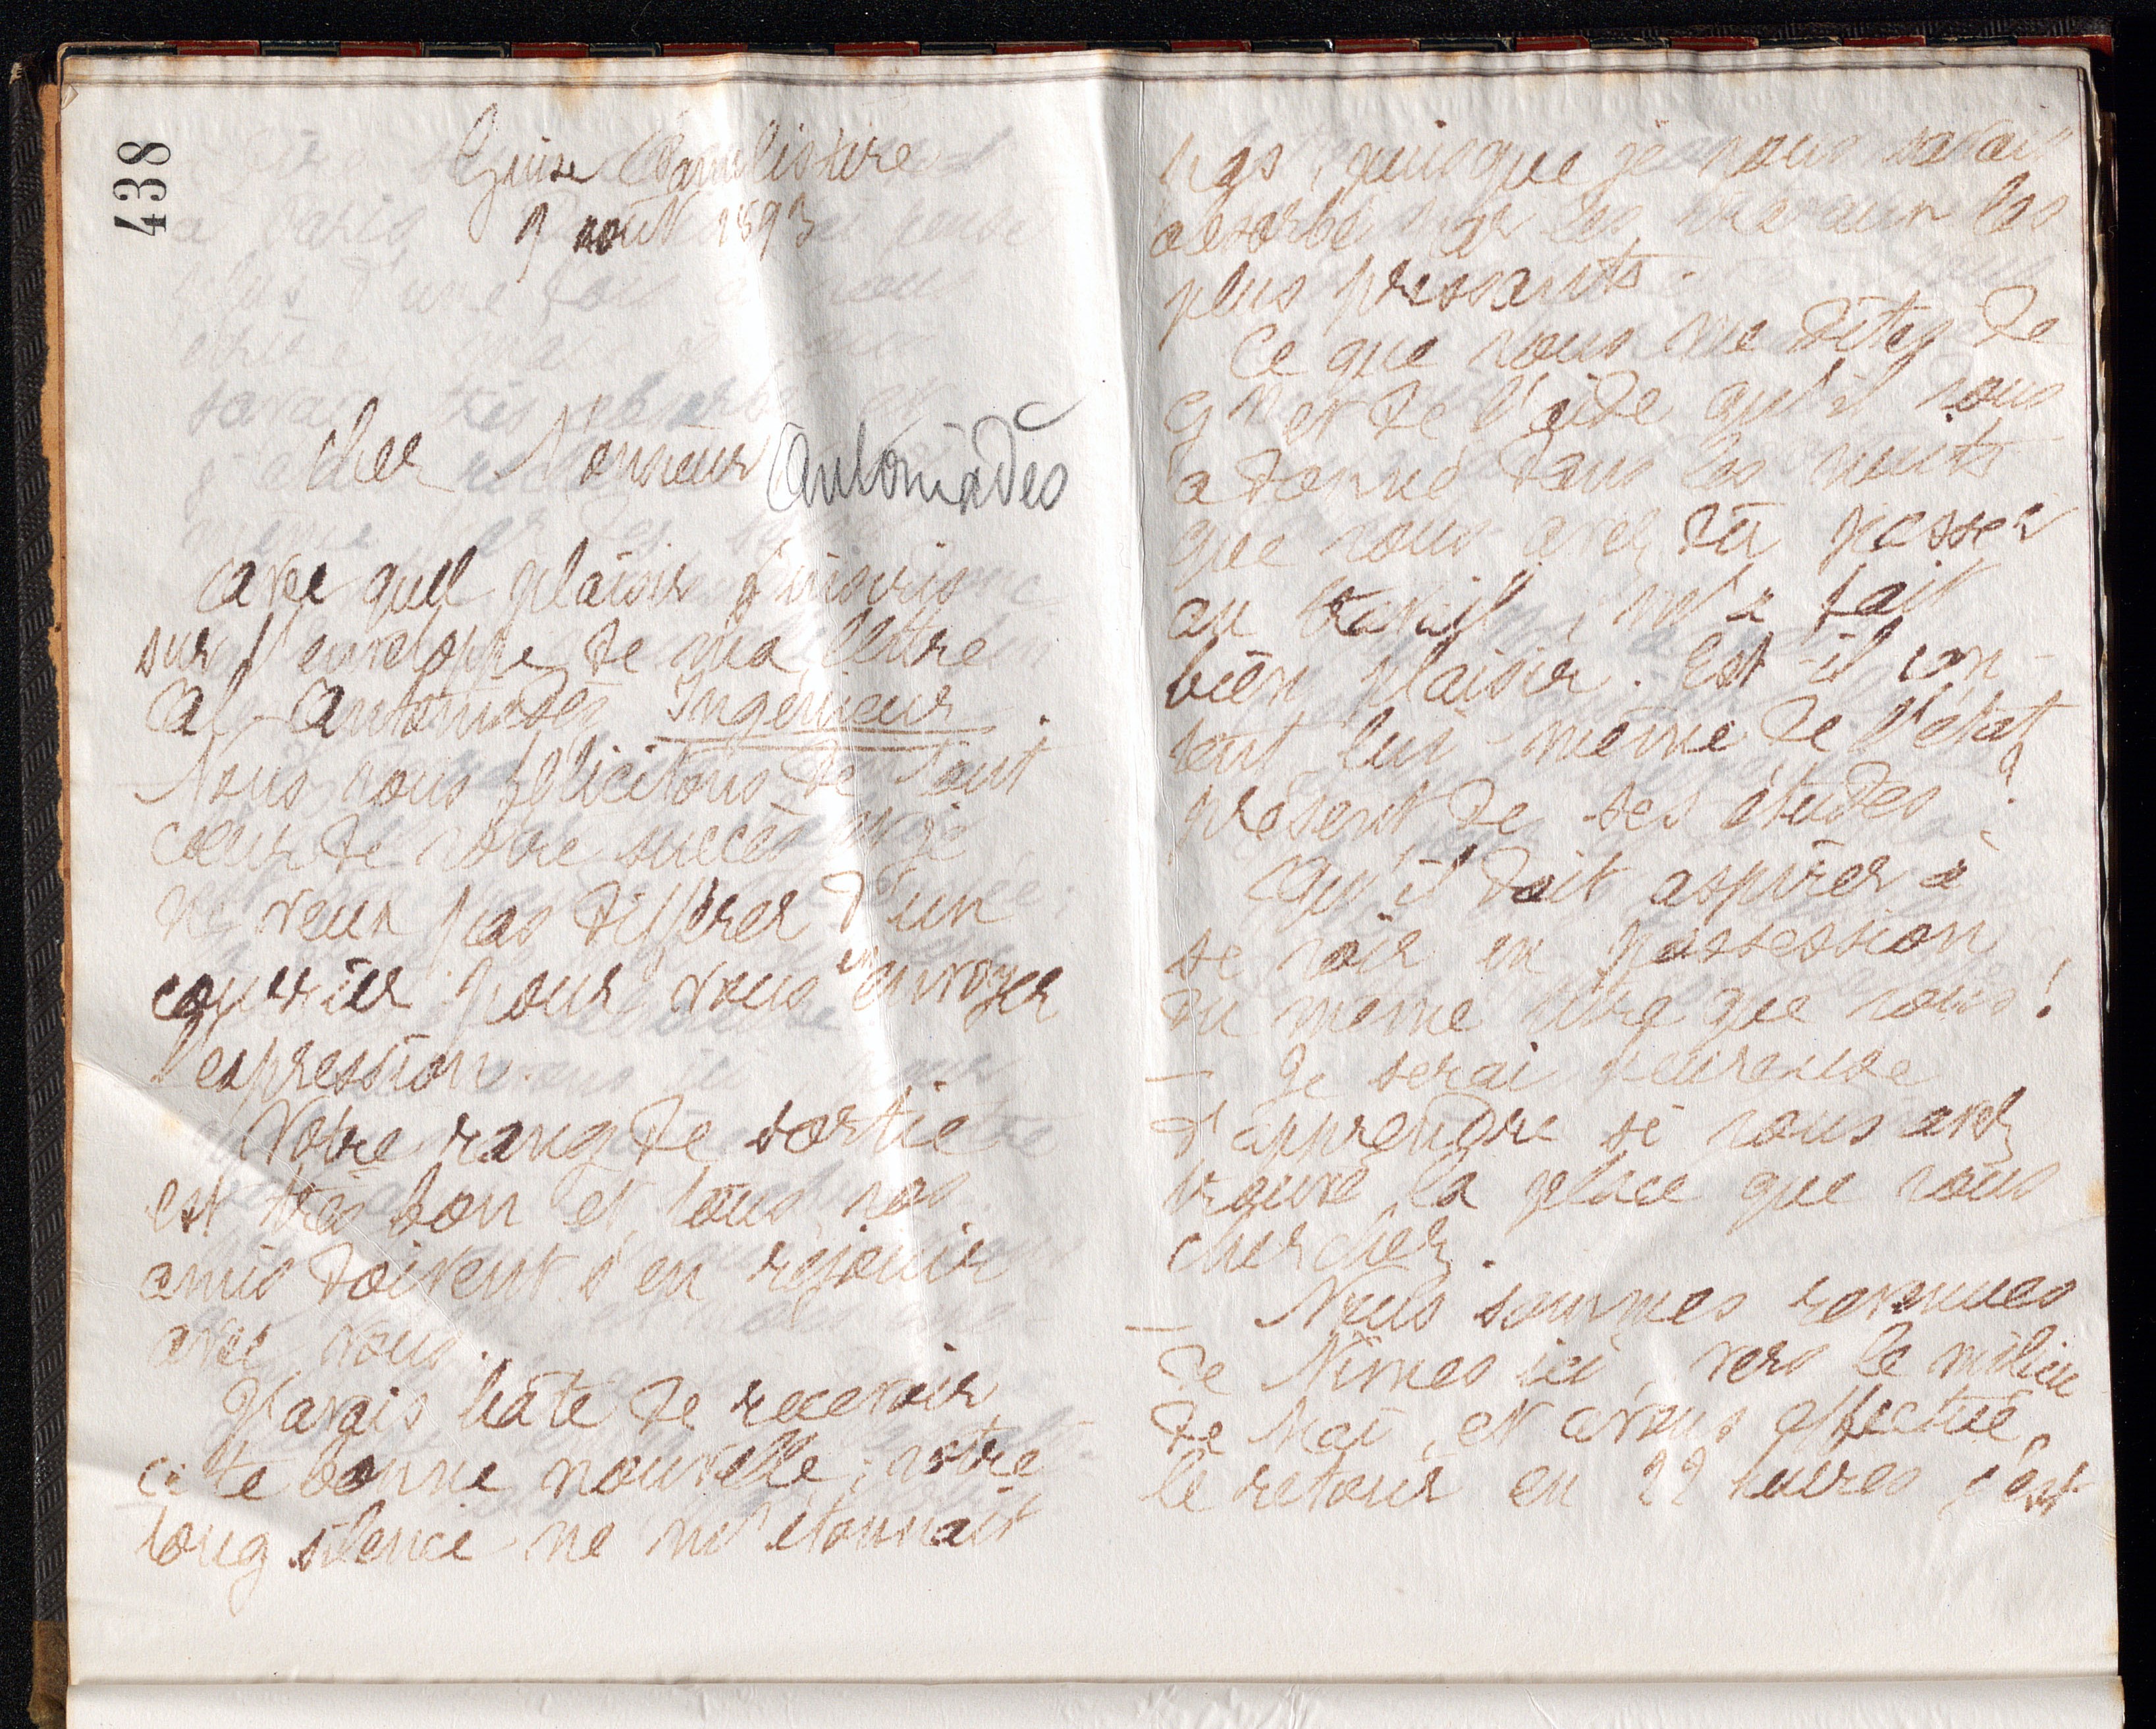 438
Guise Familistère
9 août 1893
Cher Monsieur Antoniadès
Avec quel plaisir j'inscris
sur l'enveloppe de ma lettre
Al. Antoniadès Ingénieur.
Nous vous félicitons de tout
coeur de votre succès et je
ne veux pas différer d'un
courrier pour vous en envoyer
l'expression.
Votre rang de sortie
est très bon et tous vos
amis doivent s'en réjouir
avec vous.
J'avais hâte de recevoir
cette bonne nouvelle ; votre
long silence ne m'étonnait
pas, puisque je vous savais
absorbé par les travaux les
plus pressants.
Ce que vous me dites de
et de l'aide qu'il vous
a donné dans les nuits
que vous avez dû passer
au travail, m'a fait
bien plaisir. Est-il con-
tent lui-même de l'état
présent de ses études ?
Qu'il doit aspirer à
se voir en possession
du même titre que vous !
— Je serai heureuse
d'apprendre si vous avez
trouvé la place que vous
cherchez.
— Nous sommes revenues
de Nîmes ici, vers le milieu
de Mai, et avons effectué
le retour en 22 heures, c'est